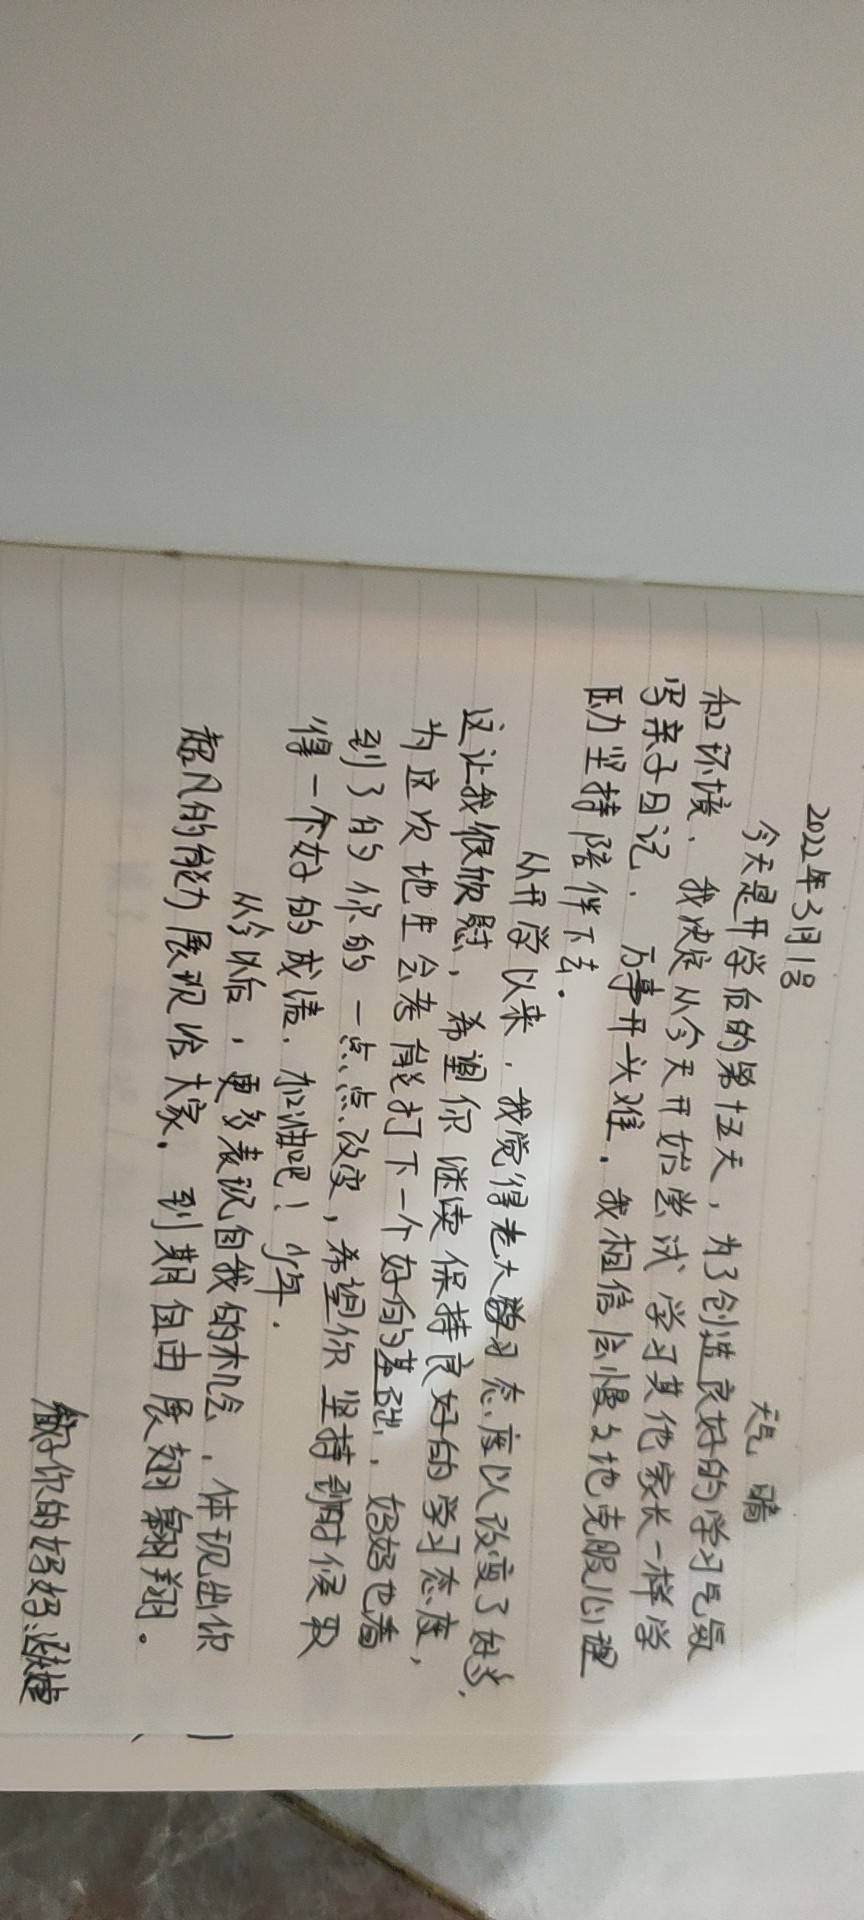 2022年3月1号
天气 晴
今天是开学后的第十五天，为了创造良好的学习气氛
和环境，我决定从今天开始尝试学习其他家长一样学
写亲子日记，万事开头难，我相信会慢慢地克服心理
助坚持陪伴下去。
从开学以来，我觉得老大学习态度以改变了好多，
这让我很欣慰，希望你继续保持良好的学习态度，
为这次地生会考能打下一个好的基础，妈妈也看
到了的你的一点点改变，希望你坚持到时候取
得一个好的成绩，加油吧！少年．
从今以后，更多表现自我的机会，体现出你
超凡的能力展现给大家，到期自由展翅翱翔。
你的妈妈